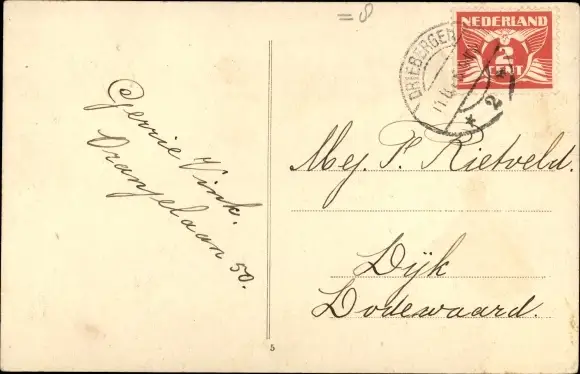 = 8
NEDERLAND
2
CENT
DRIEBERGEN
Gerrie Vink.
Oranjelaan 50.
Mej. P. Rietveld.
Dijk
Dodewaard.
5